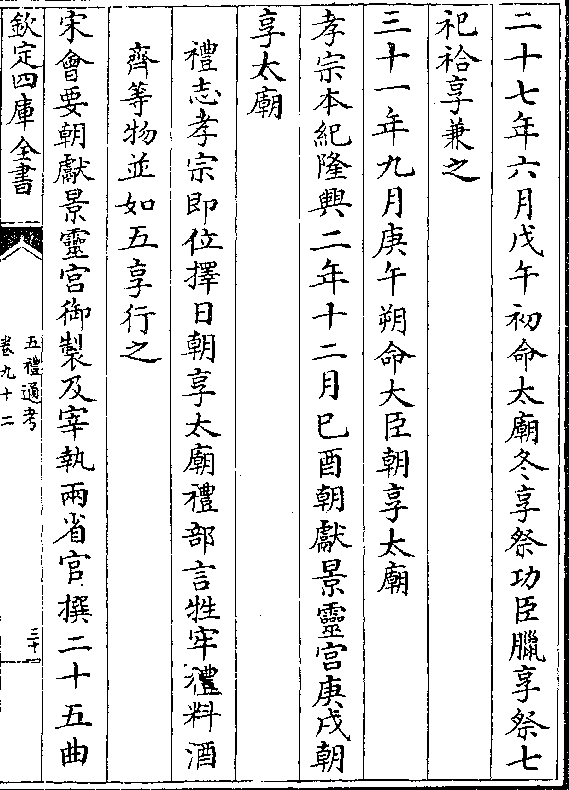 二十七年六月戊午初命太廟冬享祭功臣臘享祭七
祀祫享兼之
三十一年九月庚午朔命大臣朝享太廟
孝宗本紀隆興二年十二月已酉朝獻景靈宫庚戌朝
享太廟
禮志孝宗即位擇日朝享太廟禮部言牲牢禮料酒
齊等物並如五享行之
宋會要朝獻景靈宫御製及宰執兩省官撰二十五曲
欽定四庫全書
五禮通考
卷九十二
三十